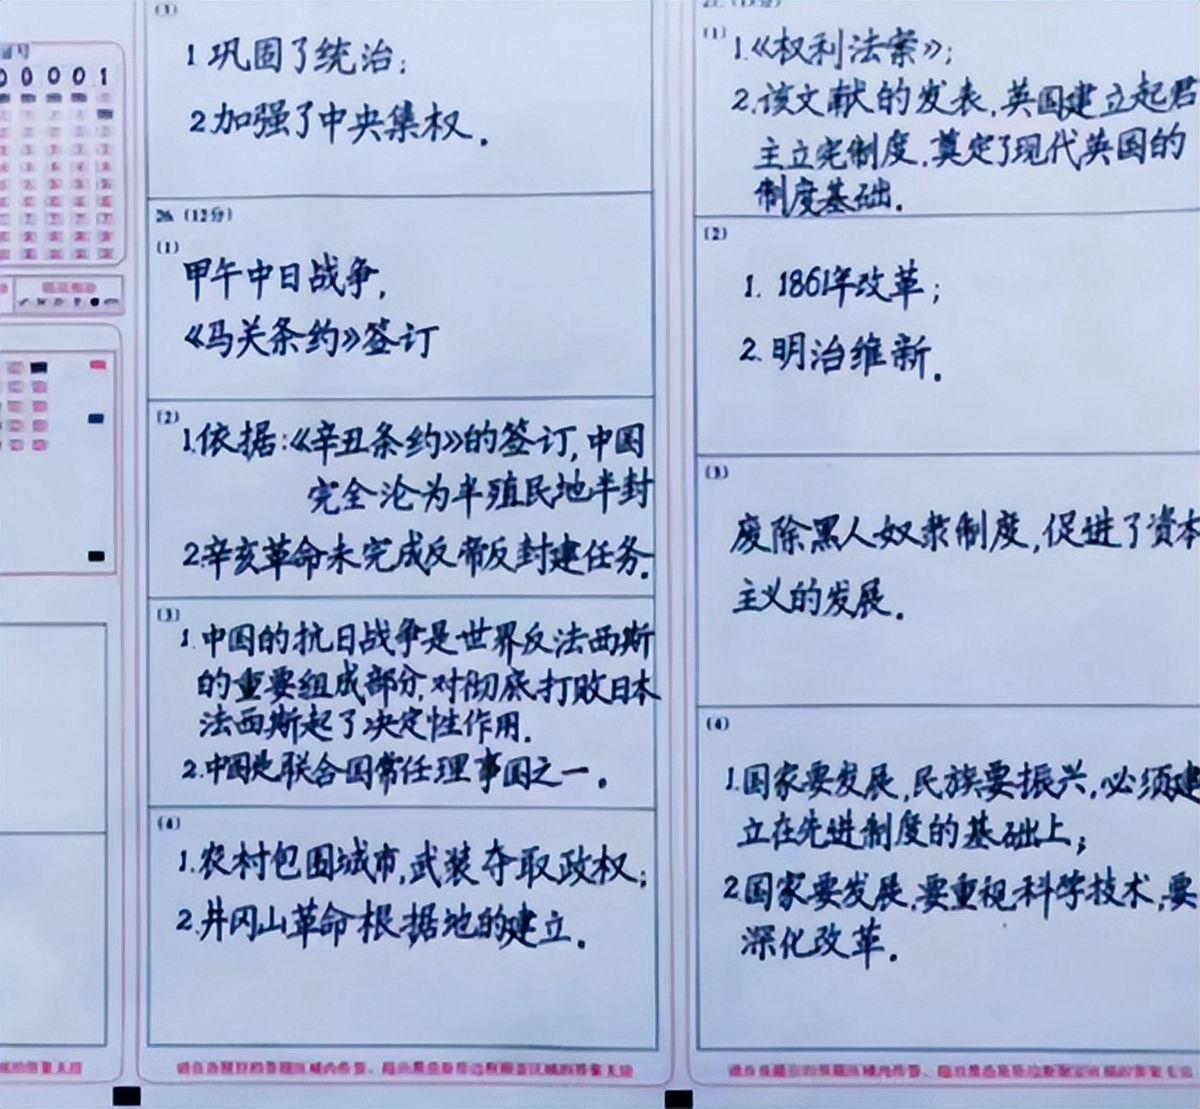 00001
(3)
1 巩固了统治;
2 加强了中央集权.
26. (12分)
(1)
甲午中日战争,
《马关条约》签订
(2)
1.依据:《辛丑条约》的签订,中国
完全沦为半殖民地半封
2.辛亥革命未完成反帝反封建任务.
(3)
1.中国的抗日战争是世界反法西斯
的重要组成部分,对彻底打败日本
法西斯起了决定性作用.
2.中国是联合国常任理事国之一。
(4)
1.农村包围城市,武装夺取政权;
2.井冈山革命根据地的建立.
(1)
1.《权利法案》;
2.该文献的发表,英国建立起君
主立宪制度,奠定了现代英国的
制度基础.
(2)
1. 1861年改革;
2. 明治维新.
(3)
废除黑人奴隶制度,促进了资本
主义的发展.
(4)
1.国家要发展,民族要振兴,必须建
立在先进制度的基础上;
2国家要发展,要重视科学技术,要
深化改革.